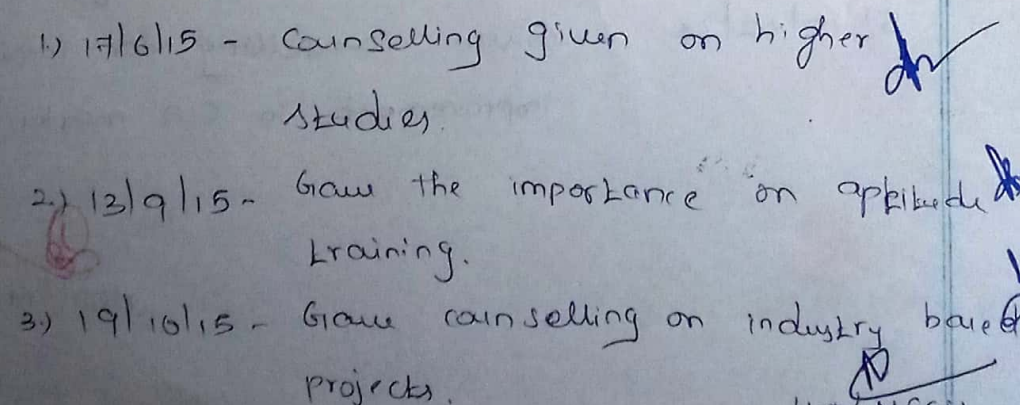 1.) 17/6/15 - Counselling given on higher
studies.
2.) 13/9/15 - Gave the importance on aptitude
training.
3.) 19/10/15 - Gave counselling on industry based
projects.